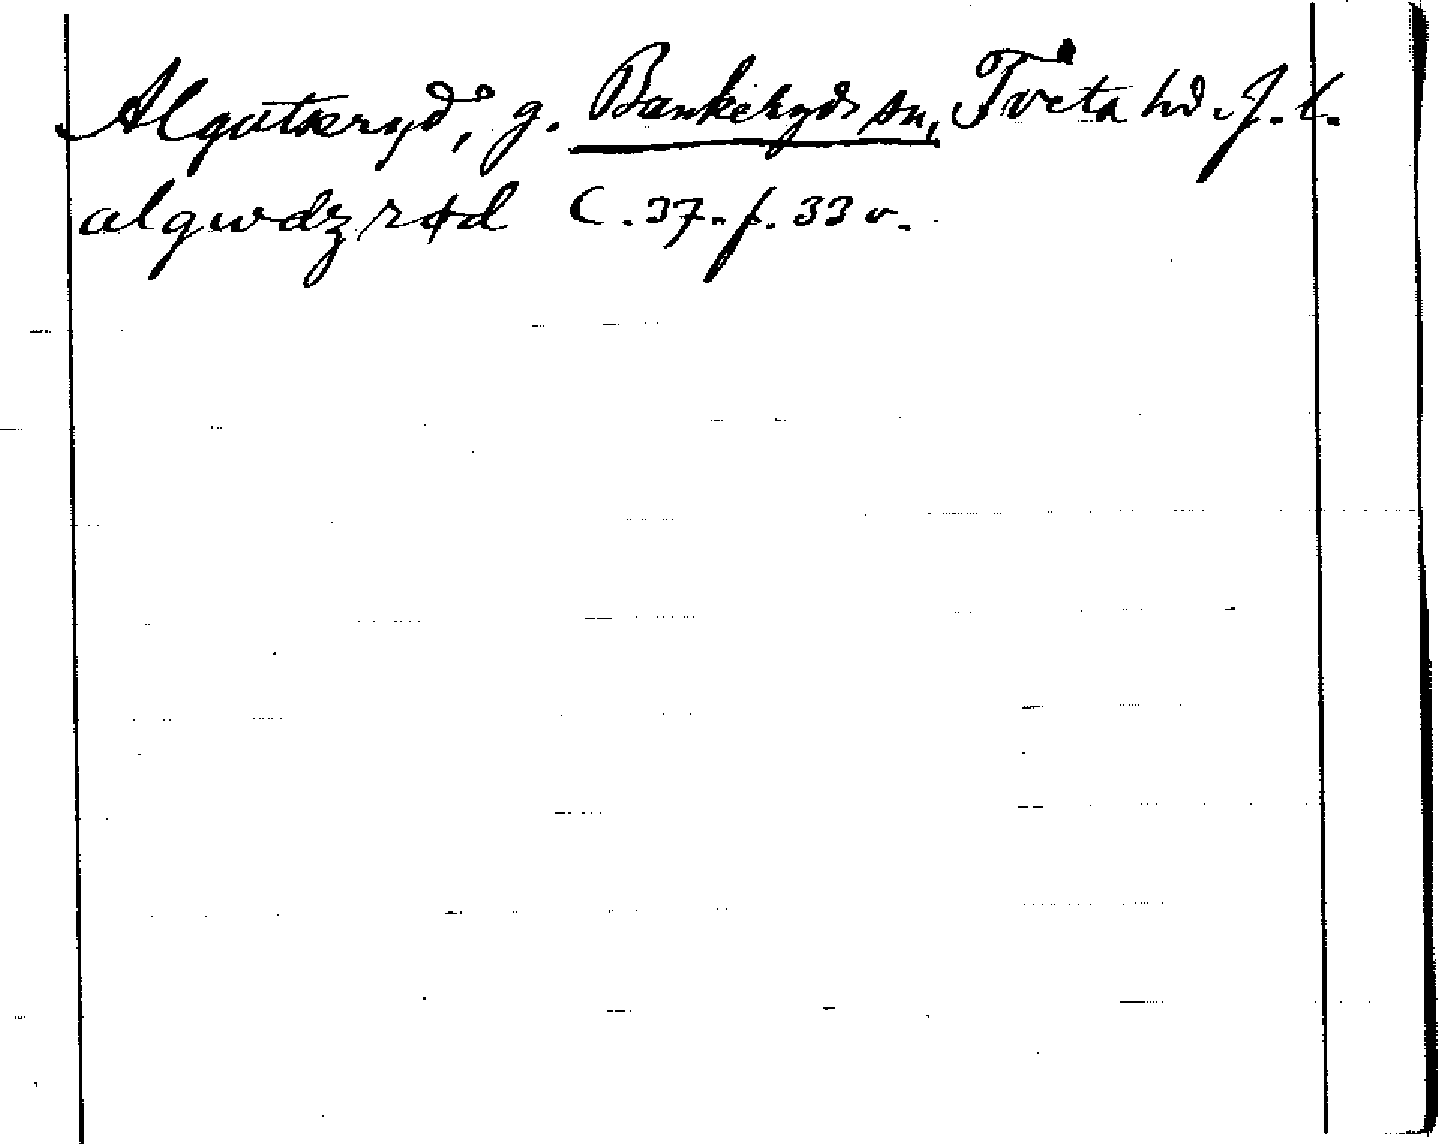 Algutsryd, g. Bankeryds sn, Tveta hd. J. l.
algwdzrød C. 37. f. 33 v.